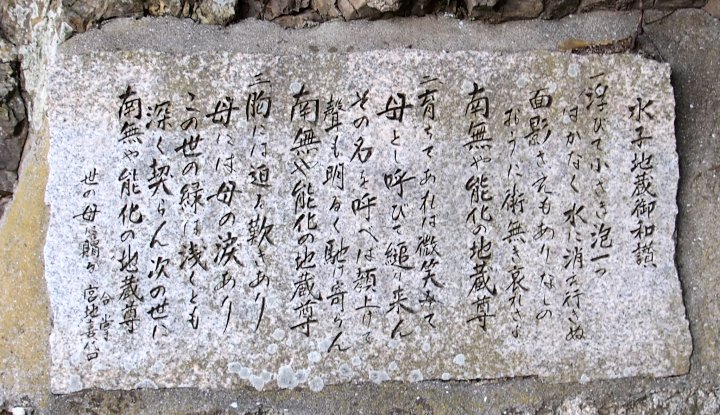 水子地蔵御和讃
一 浮びて小さき泡一つ
はかなく水に消え行きぬ
面影さえもありなしの
おもうに術無き哀れさよ
南無や能化の地蔵尊
二 育ちてあれば微笑みて
母とし呼びて縋り来ん
その名を呼べば顔上げて
聲も明るく馳け寄らん
南無や能化の地蔵尊
三 胸には迫る歎きあり
母には母の涙あり
この世の縁は浅くとも
深く契らん次の世に
南無や能化の地蔵尊
世の母に贈る
宮地